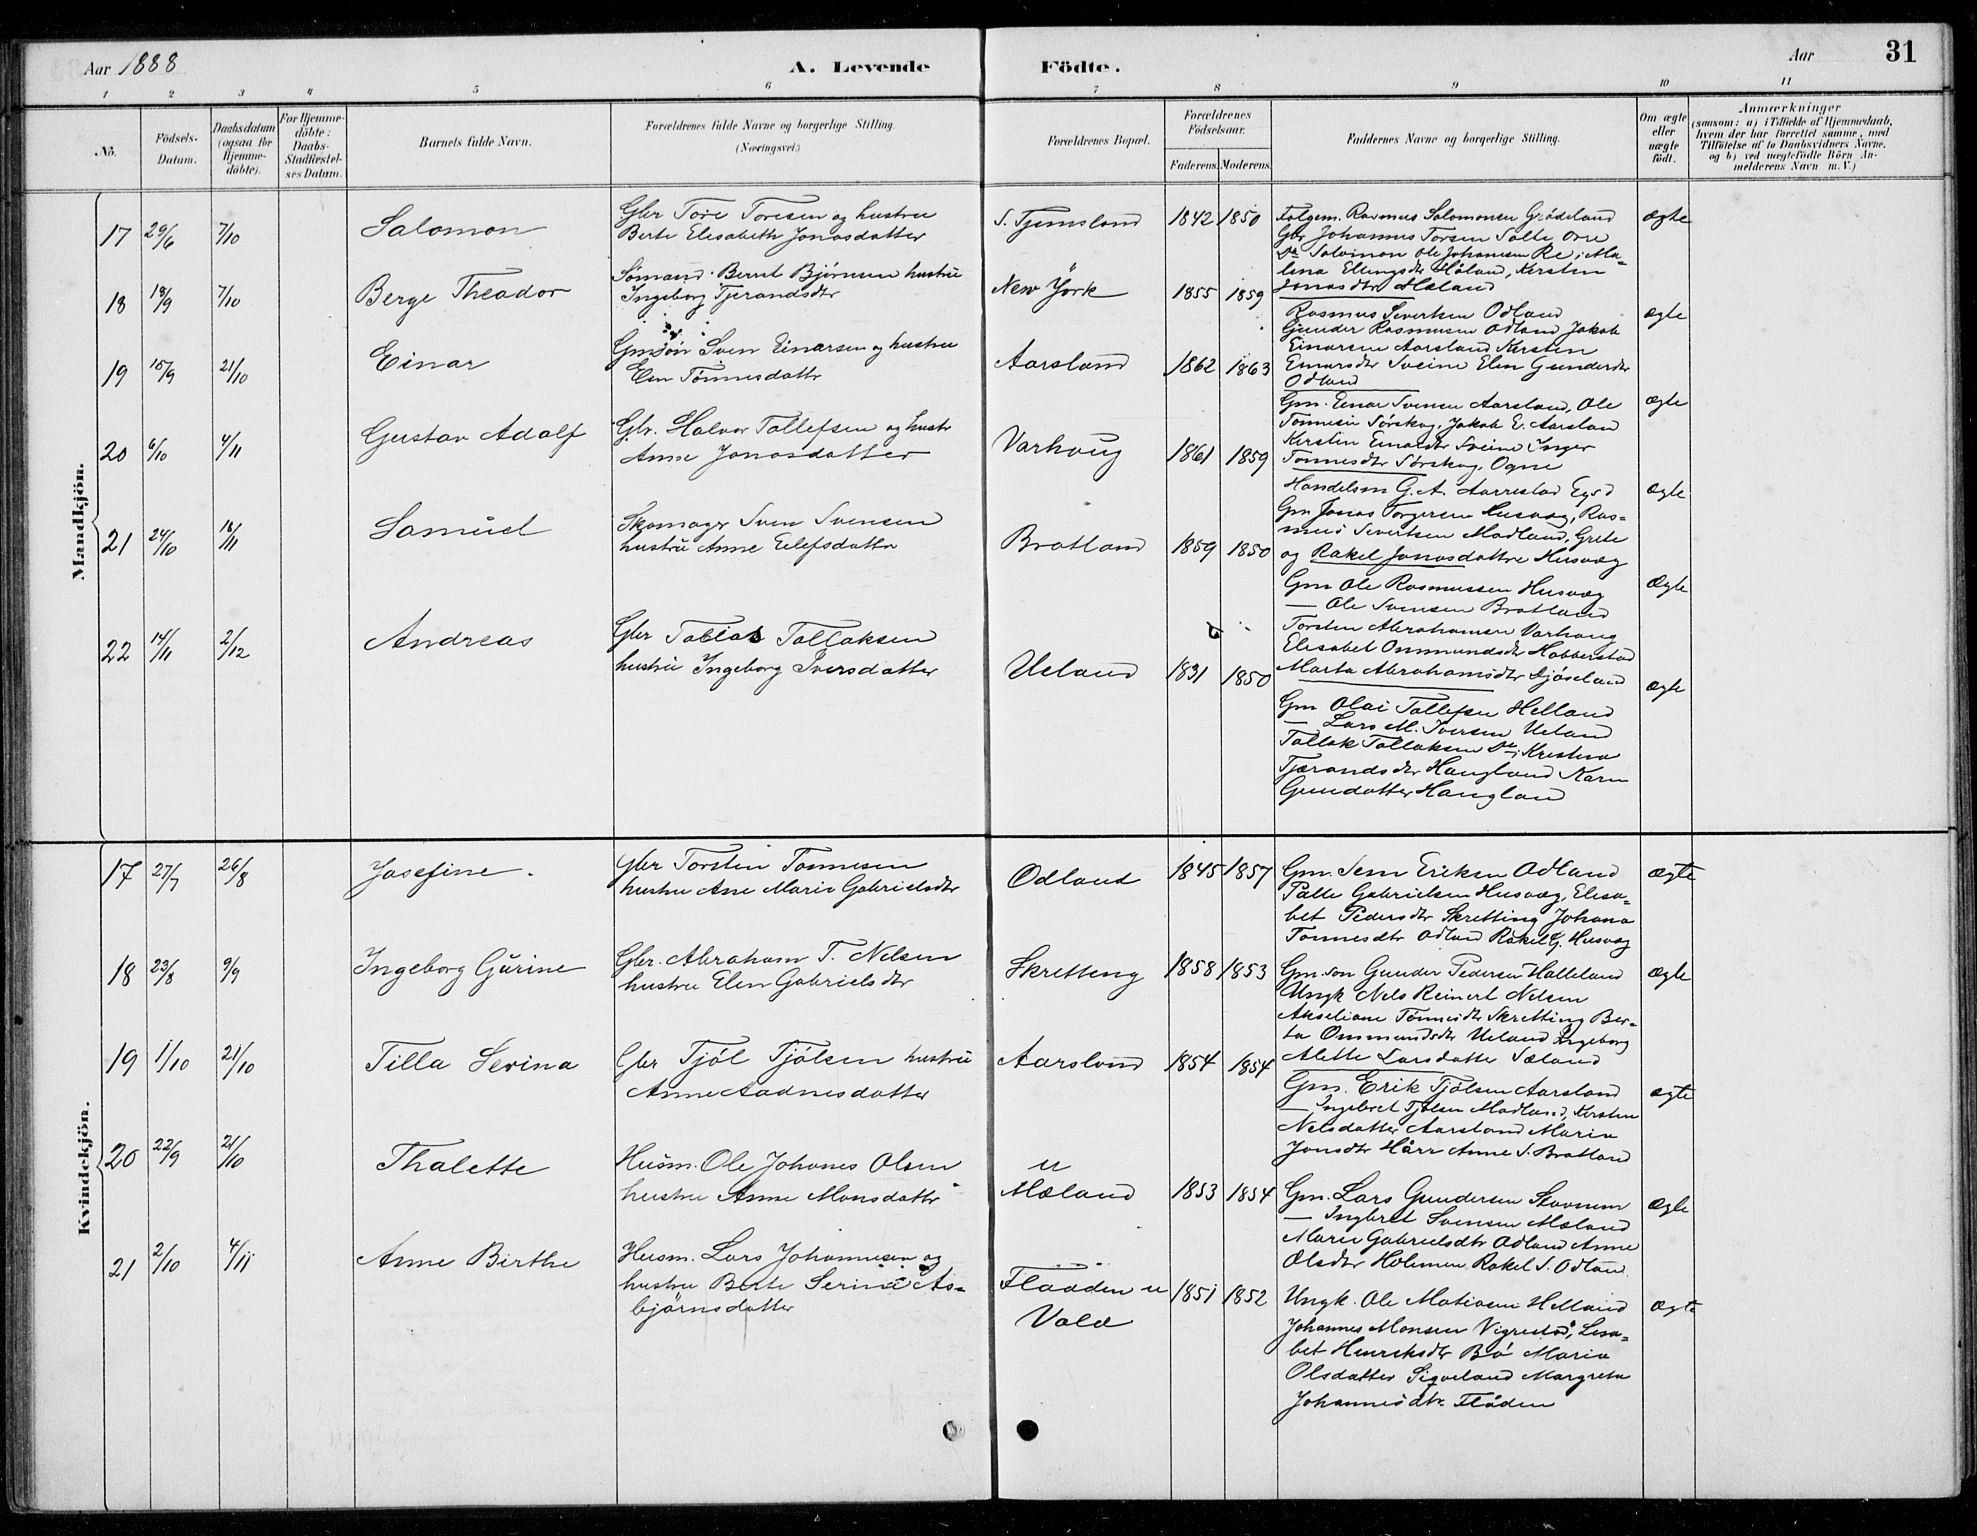 Aar 1888
A. Levende Födte.
Aar
31
1 2 3 4 5 6 7 8 9 10 11
No.
Födsels-Datum.
Daabsdatum (ogsaa for Hjemme-döbte).
For Hjemme-döbte: Daabs-Stadfæstel-ses Datum.
Barnets fulde Navn.
Forældrenes fulde Navne og borgerlige Stilling.
(Næringsvei.)
Forældrenes Bopæl.
Forældrenes Födselsaar.
Faderens. Moderens.
Faddernes Navne og borgerlige Stilling.
Om ægte eller uægte födt.
Anmærkninger
(saasom: a) i Tilfælde af Hjemmedaab,
hvem der har forrettet samme, med
Tilföielse af to Daabsvidners Navne,
og b) ved uægtefödte Börn An-
melderens Navn m. V.)
Mandkjön.
17 29/6 7/10 Salomon
Gbr Tore Toresen og hustru
Berte Elisabeth Jonasdatter
S. Tjemsland 1842 1850
Folgem. Rasmus Salomonsen Grödeland
Gbr Johannes Torsen Salte Orre
Do Salomon Ole Johansen Re, Ma-
lena Ellingsdtr Höland, Kersten
Jonasdtr Mæland
ægte
18 18/9 7/10 Berge Theodor
Sömand Bernt Björnsen hustru
Ingeborg Tjerandsdtr
New York 1855 1859
Rasmus Sivertsen Odland
Gunder Rasmusen Odland Jakob
Einarsen Aarsland Kersten
Einarsdtr Sveine Elen Gundersdtr
Odland
ægte
19 15/9 21/10 Einar
Gmsön Sven Einarsen og hustru
Elen Tönnesdattr
Aarsland 1862 1863
Gm. Einar Svensen Aarsland, Ole
Tönnesen Sörskog, Jakob E. Aarsland
Kersten Einarsdtr Sveine Inger
Tönnesdtr Sörskog, Ogne
ægte
20 6/10 4/11 Gustav Adolf
Gbr. Halvor Tollefsen og hustr
Anne Jonasdatter
Varhoug 1861 1859
Handelsm G. A. Aarrestad Egsd
Gm Jonas Torgersen Husvæg, Ras-
mus Sivertsen Madland, Grete
og Rakel Jonasdattre Husvæg
ægte
21 24/10 18/11 Samuel
Skomager Sven Svensen
hustru Anne Eilefsdattr
Bratland 1859 1850
Gm Ole Rasmussen Husvæg
— Ole Svensen Bratland
Torsten Abrahamsen Varhoug
Elisabet Ommundsdtr Hobberstad
Marta Abrahamsdtr Gjöseland
Ægte
22 14/11 2/12 Andreas
Gbr Tobias Tollaksen
hustru Ingeborg Iversdatter
Ueland 1831 1850
Gm Olai Tollefsen Helland
— Lars M. Iversen Ueland
Tollak Tollaksen Do, Kristina
Tjerandsdtr Haugland Karn
Gundatter Haugland
ægte
Kvindekjön.
17 27/7 26/8 Josefine.
Gbr Torsten Tönnesen
hustru Ane Marie Gabrielsdtr
Odland 1845 1857
Gm. Sem Eriksen Odland
Palle Gabrielsen Husvæg, Elisa-
bet Pedersdtr Skretting Johana
Tönnesdtr Odland Rakel G. Husvæg
ægte
18 23/8 9/9 Ingeborg Gürine
Gbr. Abraham T. Nelsen
hustru Elen Gabrielsdtr
Skretting 1858 1853
Gm.sön Gunder Pedersen Halleland
Ungk Nels Reinert Nelsen
Akseliane Tönnesdtr Skretting Ber-
ta Ommundsdtr Ueland Ingeborg
Alette Larsdatter Sæland
ægte
19 1/10 21/10 Tilla Serina
Gbr Tjöl Tjölsen hustru
Anne Aadnesdatter
Aarsland 1854 1854
Gm. Erik Tjölsen Aarsland
— Ingebret Tjölsen Madland, Kersten
Nelsdatter Aarsland Maria
Jonsdtr Hårr Anne S. Bratland
ægte
20 22/9 21/10 Thalette
Husm. Ole Johanes Olsen
hustru Anne Monsdattr
u
Mæland 1853 1854
Gm. Lars Gundersen Stavnem
— Ingbret Svensen Mæland
Marie Gabrielsdtr Odland Anne
Olsdtr Holmen Rakel S. Odland
ægte
21 2/10 4/11 Anne Birthe
Husm. Lars Johannesen og
hustru Berte Serine As-
björnsdatter
Flaaden u
Vold
1851 1852
Ungk. Ole Matiasen Helland
Johannes Monsen Vigrestad, Lisa-
bet Henriksdtr Bö Maria
Olsdatter Sigveland Margreta
Johannesdtr Flåden
ægte